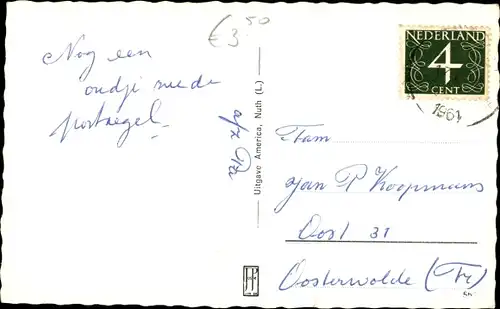 € 3.50
NEDERLAND
4
CENT
1961
Nog een
oudje
postzegel
Uitgave America, Nuth (L.)
Fam
Jan P Koopmans
Oost 31
Oosterwolde (Fr)